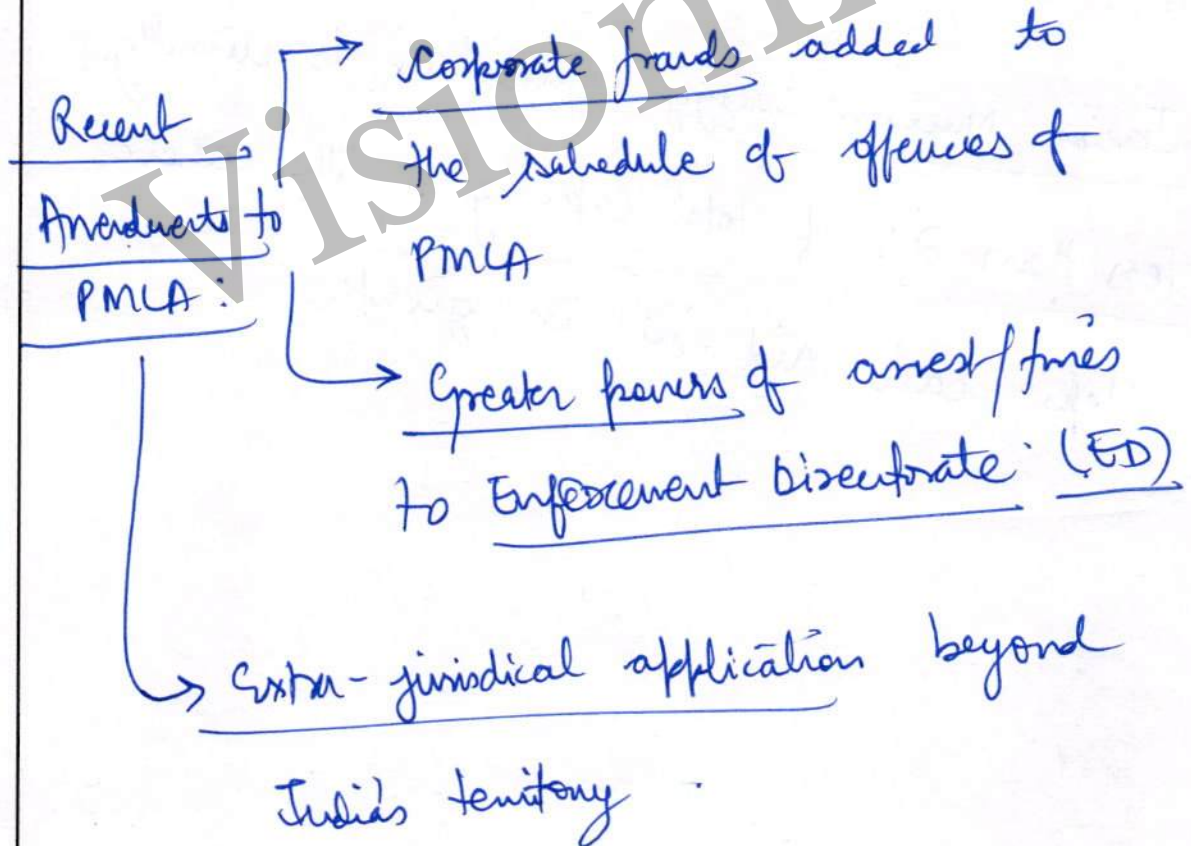 Recent
Amendments to
PMLA :
Corporate frauds added to
the schedule of offences of
PMLA
Greater powers of arrest/fines
to Enforcement Directorate (ED)
Extra-jurisdical application beyond
India's territory.
Vision